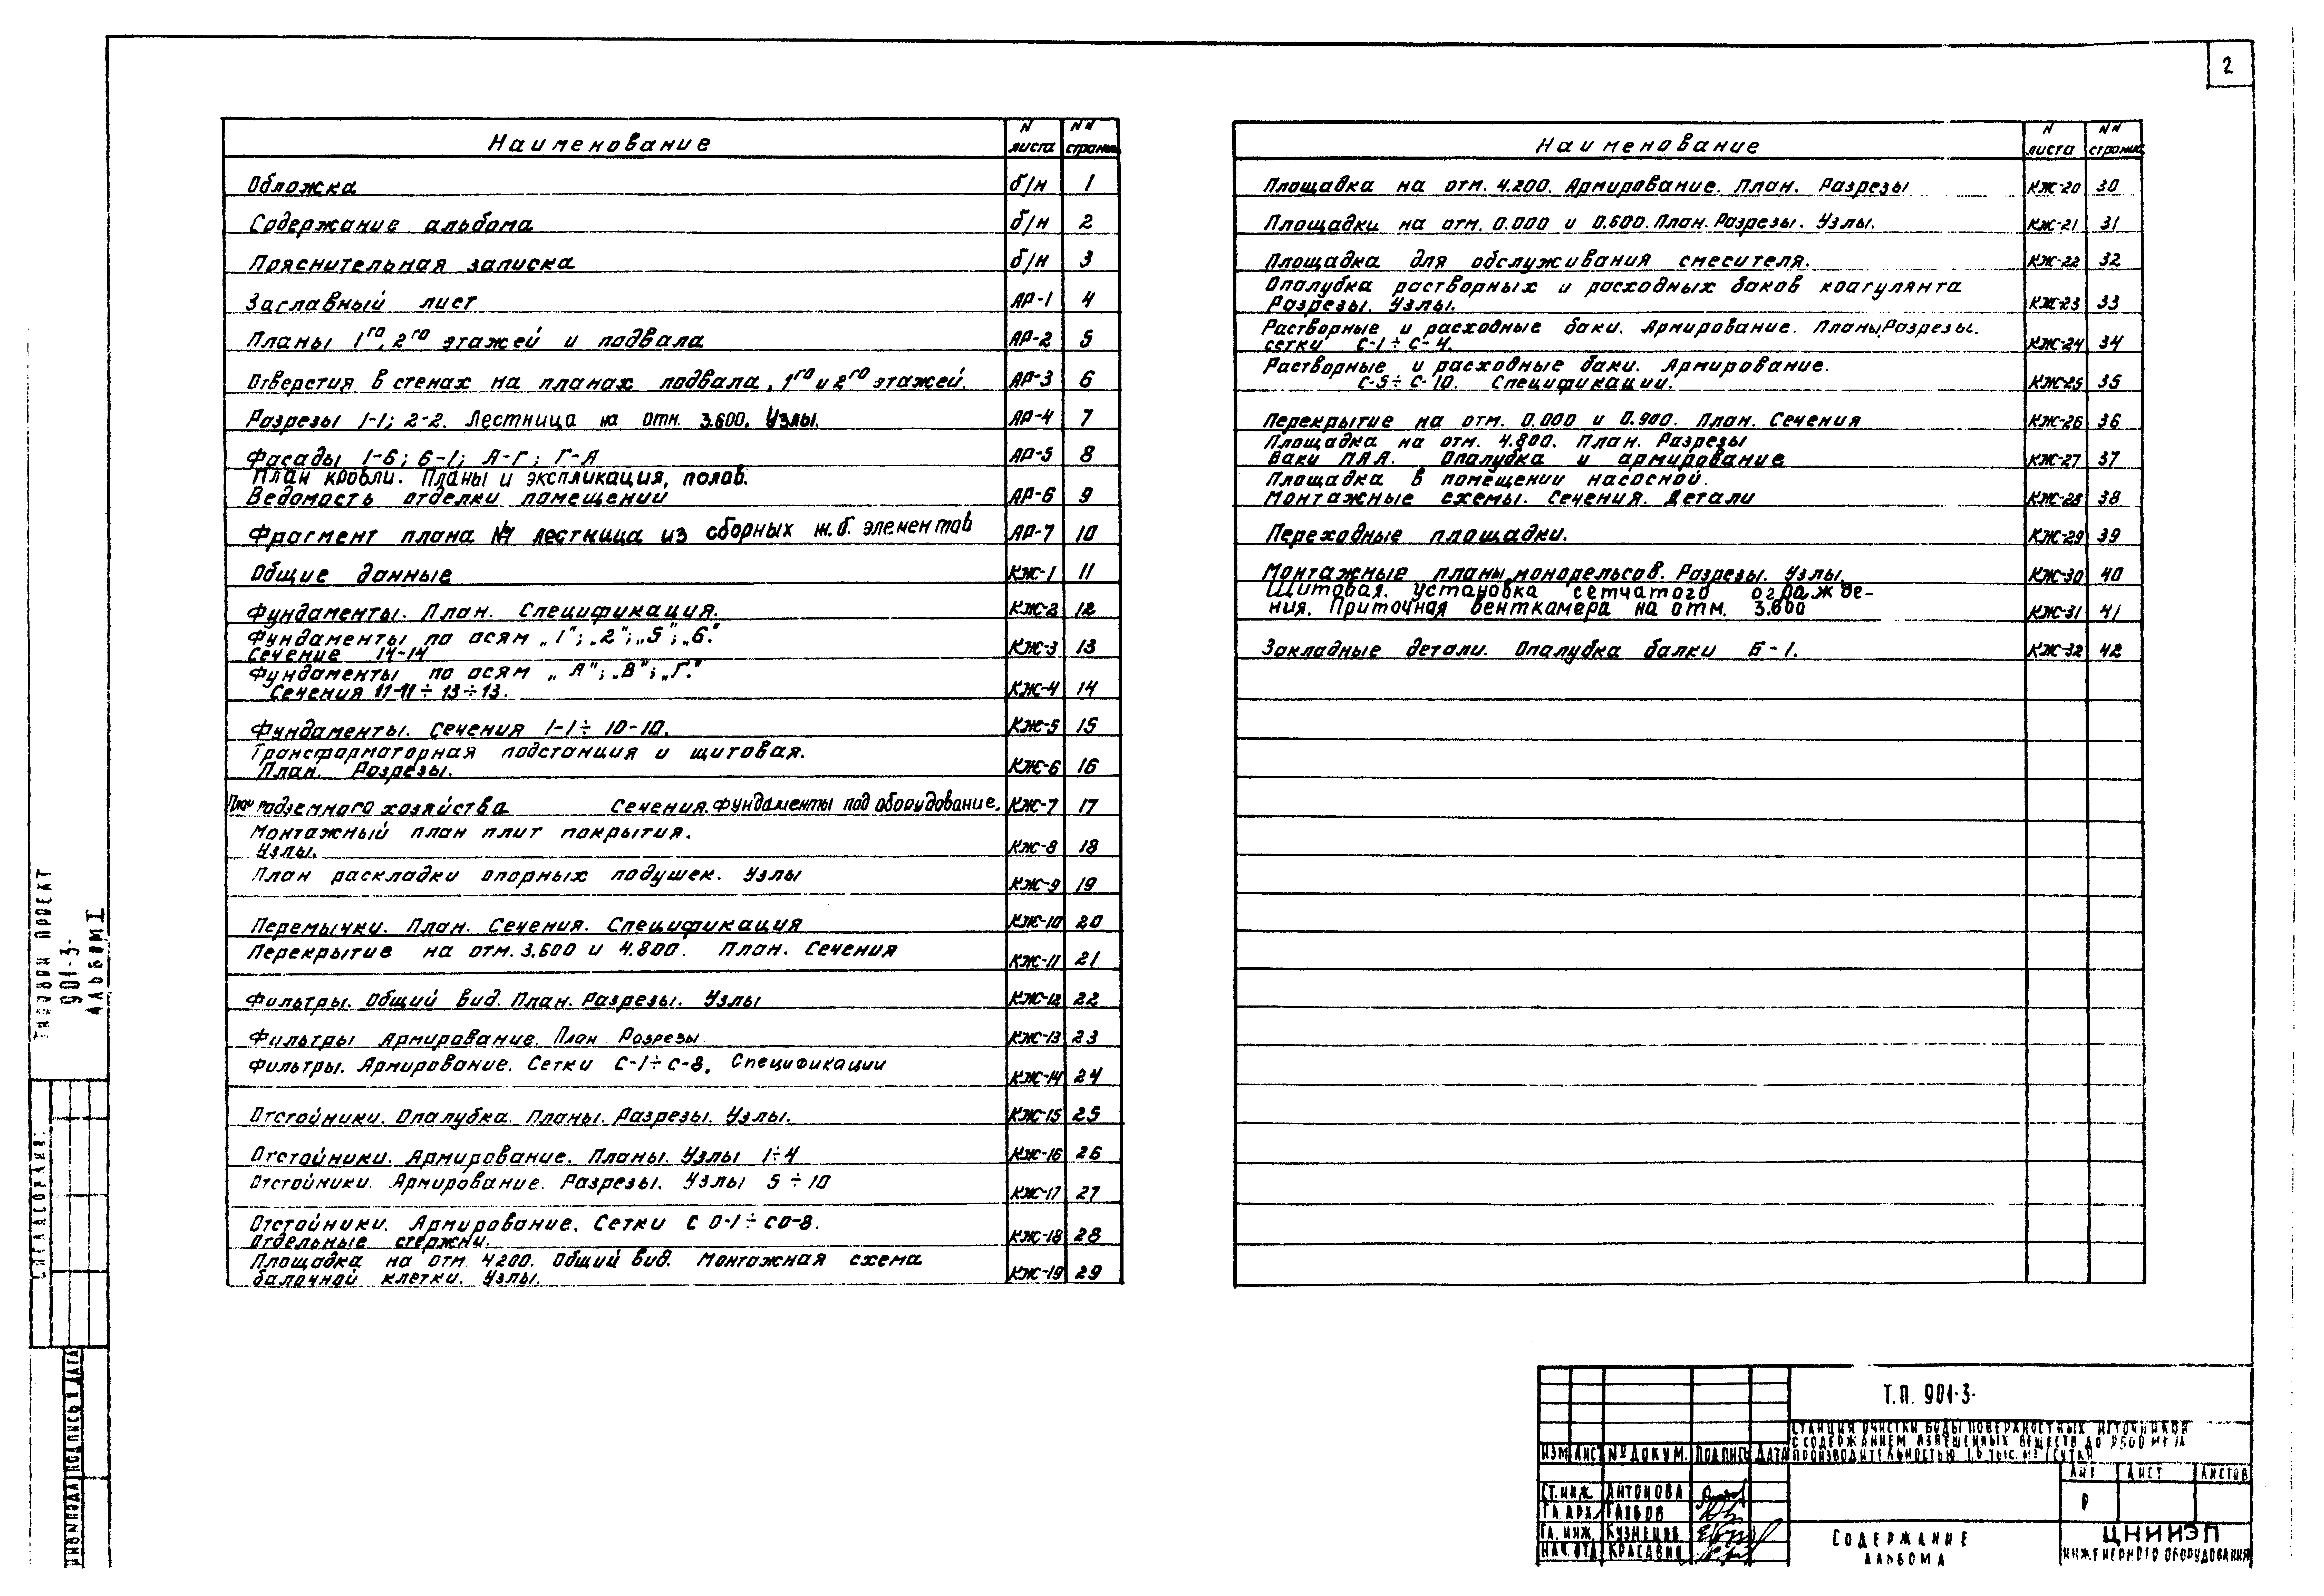 2
Наименование N листа NN страниц
Обложка б/н 1
Содержание альбома б/н 2
Пояснительная записка б/н 3
Заглавный лист АР-1 4
Планы 1го, 2го этажей и подвала АР-2 5
Отверстия в стенах на планах подвала, 1го и 2го этажей. АР-3 6
Разрезы 1-1; 2-2. Лестница на отм. 3.600. Узлы. АР-4 7
Фасады 1-6; 6-1; А-Г; Г-А АР-5 8
План кровли. Планы и экспликация, полов.
Ведомость отделки помещений АР-6 9
Фрагмент плана №1 лестница из сборных ж.б. элементов АР-7 10
Общие данные КЖ-1 11
Фундаменты. План. Спецификация. КЖ-2 12
Фундаменты по осям „1"; „2"; „5"; „6."
Сечение 14-14 КЖ-3 13
Фундаменты по осям „А"; „В"; „Г."
Сечения 11-11 ÷ 13÷13. КЖ-4 14
Фундаменты. Сечения 1-1 ÷ 10-10. КЖ-5 15
Трансформаторная подстанция и щитовая.
План. Разрезы. КЖ-6 16
План подземного хозяйства Сечения. Фундаменты под оборудование. КЖ-7 17
Монтажный план плит покрытия.
Узлы. КЖ-8 18
План раскладки опорных подушек. Узлы КЖ-9 19
Перемычки. План. Сечения. Спецификация КЖ-10 20
Перекрытие на отм. 3.600 и 4.800. План. Сечения КЖ-11 21
Фильтры. Общий вид. План. Разрезы. Узлы КЖ-12 22
Фильтры Армирование. План Разрезы КЖ-13 23
Фильтры. Армирование. Сетки С-1÷С-8. Спецификации КЖ-14 24
Отстойники. Опалубка. Планы. Разрезы. Узлы. КЖ-15 25
Отстойники. Армирование. Планы. Узлы 1÷4 КЖ-16 26
Отстойники. Армирование. Разрезы. Узлы 5÷10 КЖ-17 27
Отстойники. Армирование. Сетки СО-1÷СО-8.
Отдельные стержни. КЖ-18 28
Площадка на отм. 4200. Общий вид. Монтажная схема
балочной клетки. Узлы. КЖ-19 29
Наименование N листа NN страниц
Площадка на отм. 4.200. Армирование. План. Разрезы КЖ-20 30
Площадки на отм. 0.000 и 0.600. План. Разрезы. Узлы. КЖ-21 31
Площадка для обслуживания смесителя. КЖ-22 32
Опалубка растворных и расходных баков коагулянта
Разрезы. Узлы. КЖ-23 33
Растворные и расходные баки. Армирование. Планы, Разрезы.
сетки С-1÷С-4. КЖ-24 34
Растворные и расходные баки. Армирование.
С-5÷С-10. Спецификации. КЖ-25 35
Перекрытие на отм. 0.000 и 0.900. План. Сечения КЖ-26 36
Площадка на отм. 4.800. План. Разрезы
Баки ПАА. Опалубка и армирование КЖ-27 37
Площадка в помещении насосной.
Монтажные схемы. Сечения. Детали КЖ-28 38
Переходные площадки. КЖ-29 39
Монтажные планы, монорельсов. Разрезы. Узлы КЖ-30 40
Щитовая. установка сетчатого огражде-
ния. Приточная венткамера на отм. 3.600 КЖ-31 41
Закладные детали. Опалубка балки Б-1. КЖ-32 42
ТИПОВОЙ ПРОЕКТ
901-3-
АЛЬБОМ I
СОГЛАСОВАНИЕ:
ИНВ№ПОДЛ ПОДПИСЬ И ДАТА
Т.П. 901-3-
СТАНЦИЯ ОЧИСТКИ ВОДЫ ПОВЕРХНОСТНЫХ ИСТОЧНИКОВ
С СОДЕРЖАНИЕМ ВЗВЕШЕННЫХ ВЕЩЕСТВ ДО 2500 МГ/Л
ПРОИЗВОДИТЕЛЬНОСТЬЮ 1,6 ТЫС. М³/СУТКИ
ИЗМ ЛИСТ № ДОКУМ. ПОДПИСЬ ДАТА
ЛИТ ЛИСТ ЛИСТОВ
Р
СТ. ИНЖ. АНТОНОВА
ГЛ. АРХ.
ГЛ. ИНЖ. КУЗНЕЦОВ
НАЧ. ОТД КРАСАВИН
СОДЕРЖАНИЕ
АЛЬБОМА
ЦНИИЭП
ИНЖЕНЕРНОГО ОБОРУДОВАНИЯ